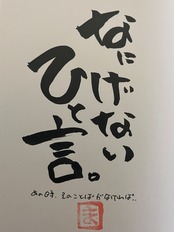 なにげない
ひと言。
あの時、そのことばがなければ…